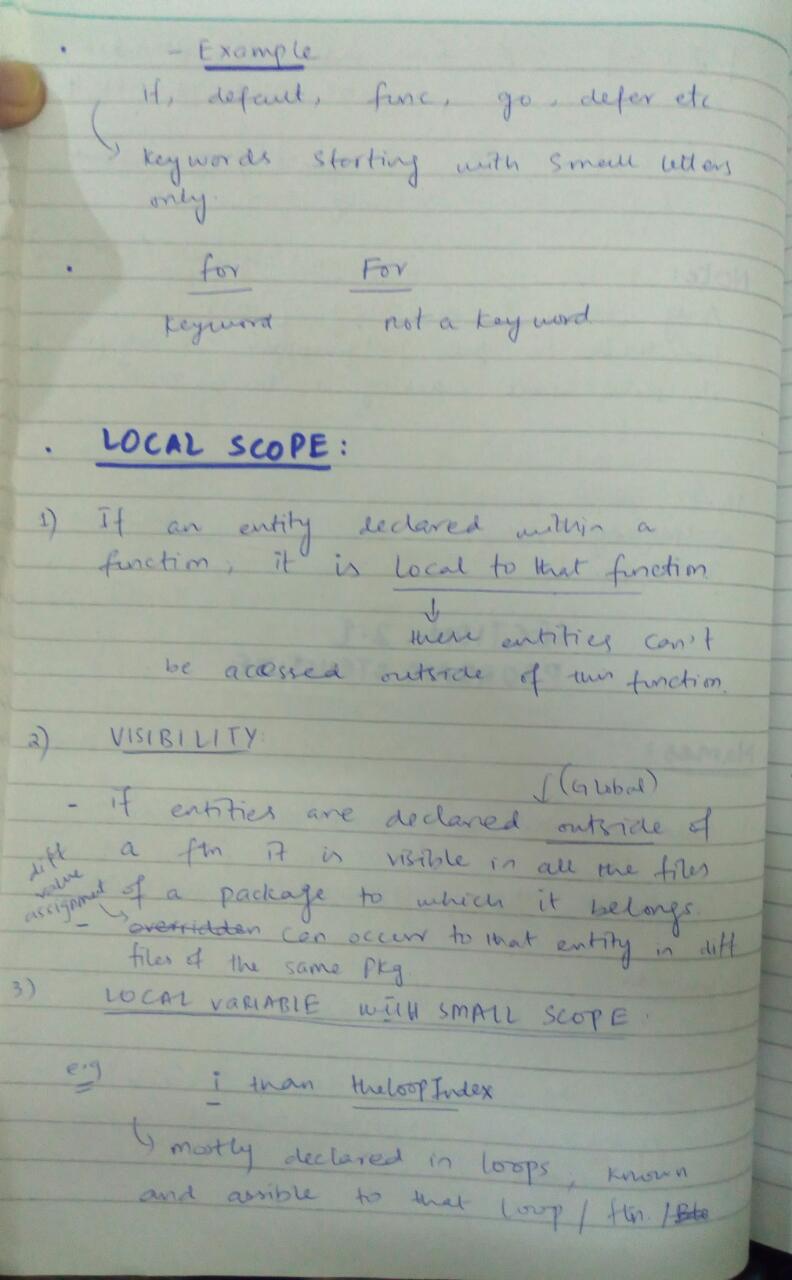 - Example
If, default, func, go, defer etc
keywords starting with small letters
only.
for For
keyword not a keyword
LOCAL SCOPE:
1) If an entity declared within a
function, it is local to that function
these entities can't
be accessed outside of this function.
2) VISIBILITY:
(Global)
- if entities are declared outside of
a ftn it is visible in all the files
of a package to which it belongs.
diff
value
assignment
- overridden can occur to that entity in diff
files of the same pkg.
3) LOCAL VARIABLE WITH SMALL SCOPE.
e.g i than theloopIndex
mostly declared in loops, known
and to that loop / ftn. /